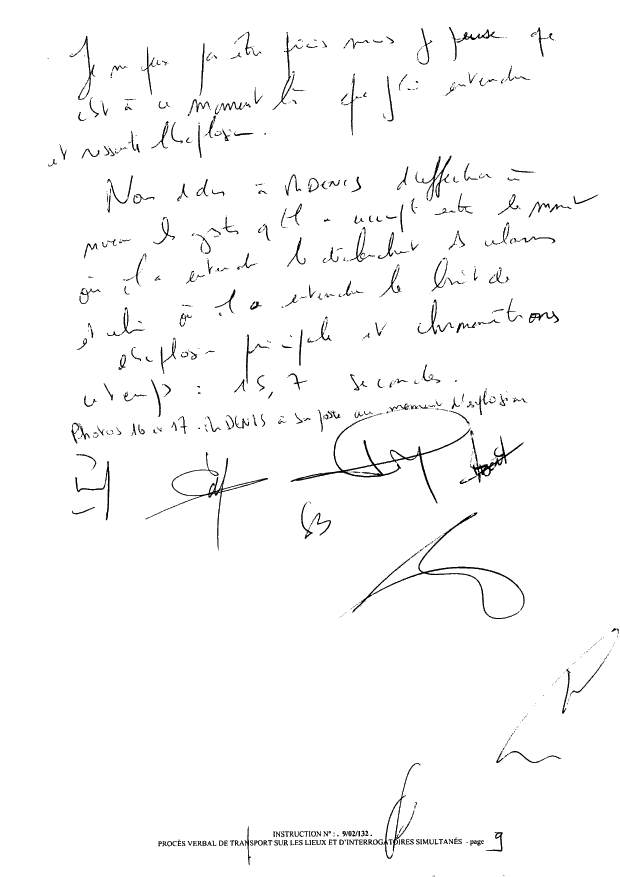 Je ne peux pas être précis mais je pense que
c'est à ce moment là que j'ai entendu
et ressenti l'explosion.
Nous à M DENIS d'effectuer à
nouveau les gestes qu'il a accompli entre le moment
où il a entendu le déclenchement alarmes
et celui où il a entendu le bruit de
l'explosion principale et chronométrons
ce temps : 15,7 secondes.
Photos 16 et 17 - M DENIS à son poste au moment d'explosion
SB
INSTRUCTION N° : . 9/02/132 .
PROCÈS VERBAL DE TRANSPORT SUR LES LIEUX ET D'INTERROGATOIRES SIMULTANÉS - page 9